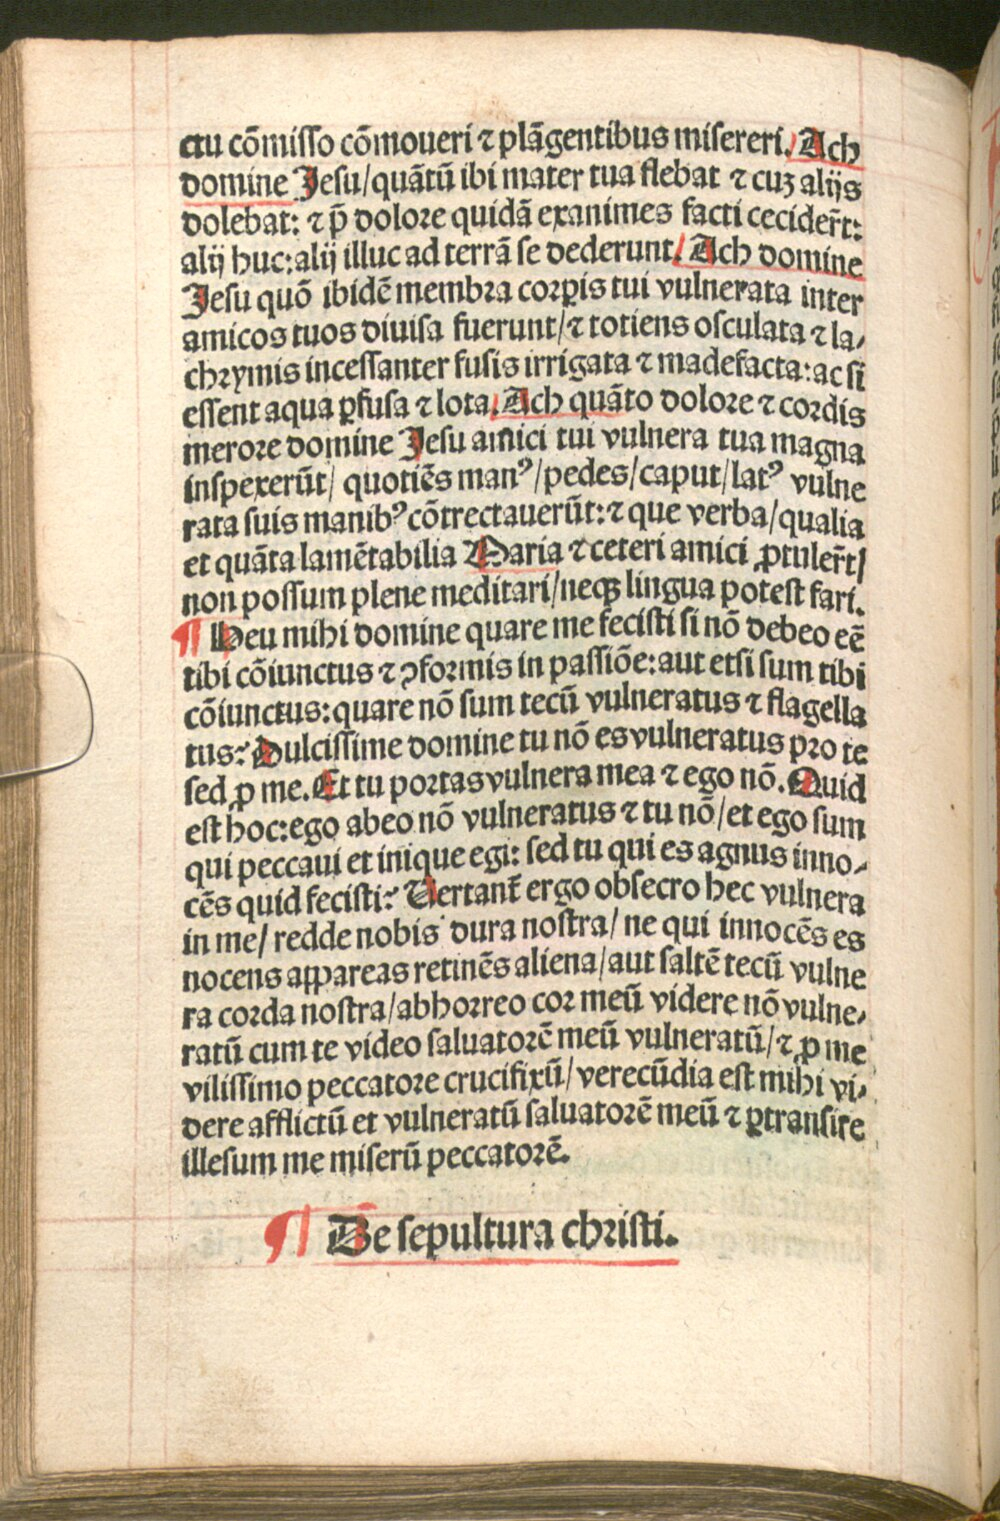 ctu cōmisso cōmoueri ⁊ plāgentibus misereri. Ach
domine Jesu/quātū ibi mater tua flebat ⁊ cuꝫ alijs
dolebat: ⁊ p̄ dolore quidā exanimes facti cecider̄t:
alij huc: alij illuc ad terrā se dederunt. Ach domine
Jesu quō ibidē membra corꝑis tui vulnerata inter
amicos tuos diuisa fuerunt/⁊ totiens osculata ⁊ la-
chrymis incessanter fusis irrigata ⁊ madefacta: ac si
essent aqua ꝑfusa ⁊ lota. Ach quāto dolore ⁊ cordis
merore domine Jesu amici tui vulnera tua magna
inspexerūt/ quotiēs manꝰ/pedes/caput/latꝰ vulne
rata suis manibꝰ cōtrectauerūt: ⁊ que verba/qualia
et quāta lamētabilia Maria ⁊ ceteri amici ꝓtuler̄t/
non possum plene meditari/neqꝫ lingua potest fari.
¶ Heu mihi domine quare me fecisti si nō debeo eē
tibi cōiunctus ⁊ ꝯformis in passiōe: aut etsi sum tibi
cōiunctus: quare nō sum tecū vulneratus ⁊ flagella
tus? Dulcissime domine tu nō es vulneratus pro te
sed ꝓ me. Et tu portas vulnera mea ⁊ ego nō. Quid
est hoc: ego abeo nō vulneratus ⁊ tu nō/et ego sum
qui peccaui et inique egi: sed tu qui es agnus inno-
cēs quid fecisti? Vertant̄ ergo obsecro hec vulnera
in me/ redde nobis dura nostra/ ne qui innocēs es
nocens appareas retinēs aliena/aut saltē tecū vulne
ra corda nostra/abhorreo cor meū videre nō vulne-
ratū cum te video saluatorē meū vulneratū/⁊ ꝓ me
vilissimo peccatore crucifixū/verecūdia est mihi vi-
dere afflictū et vulneratū saluatorē meū ⁊ ꝑtransire
illesum me miserū peccatorē.
¶ De sepultura christi.